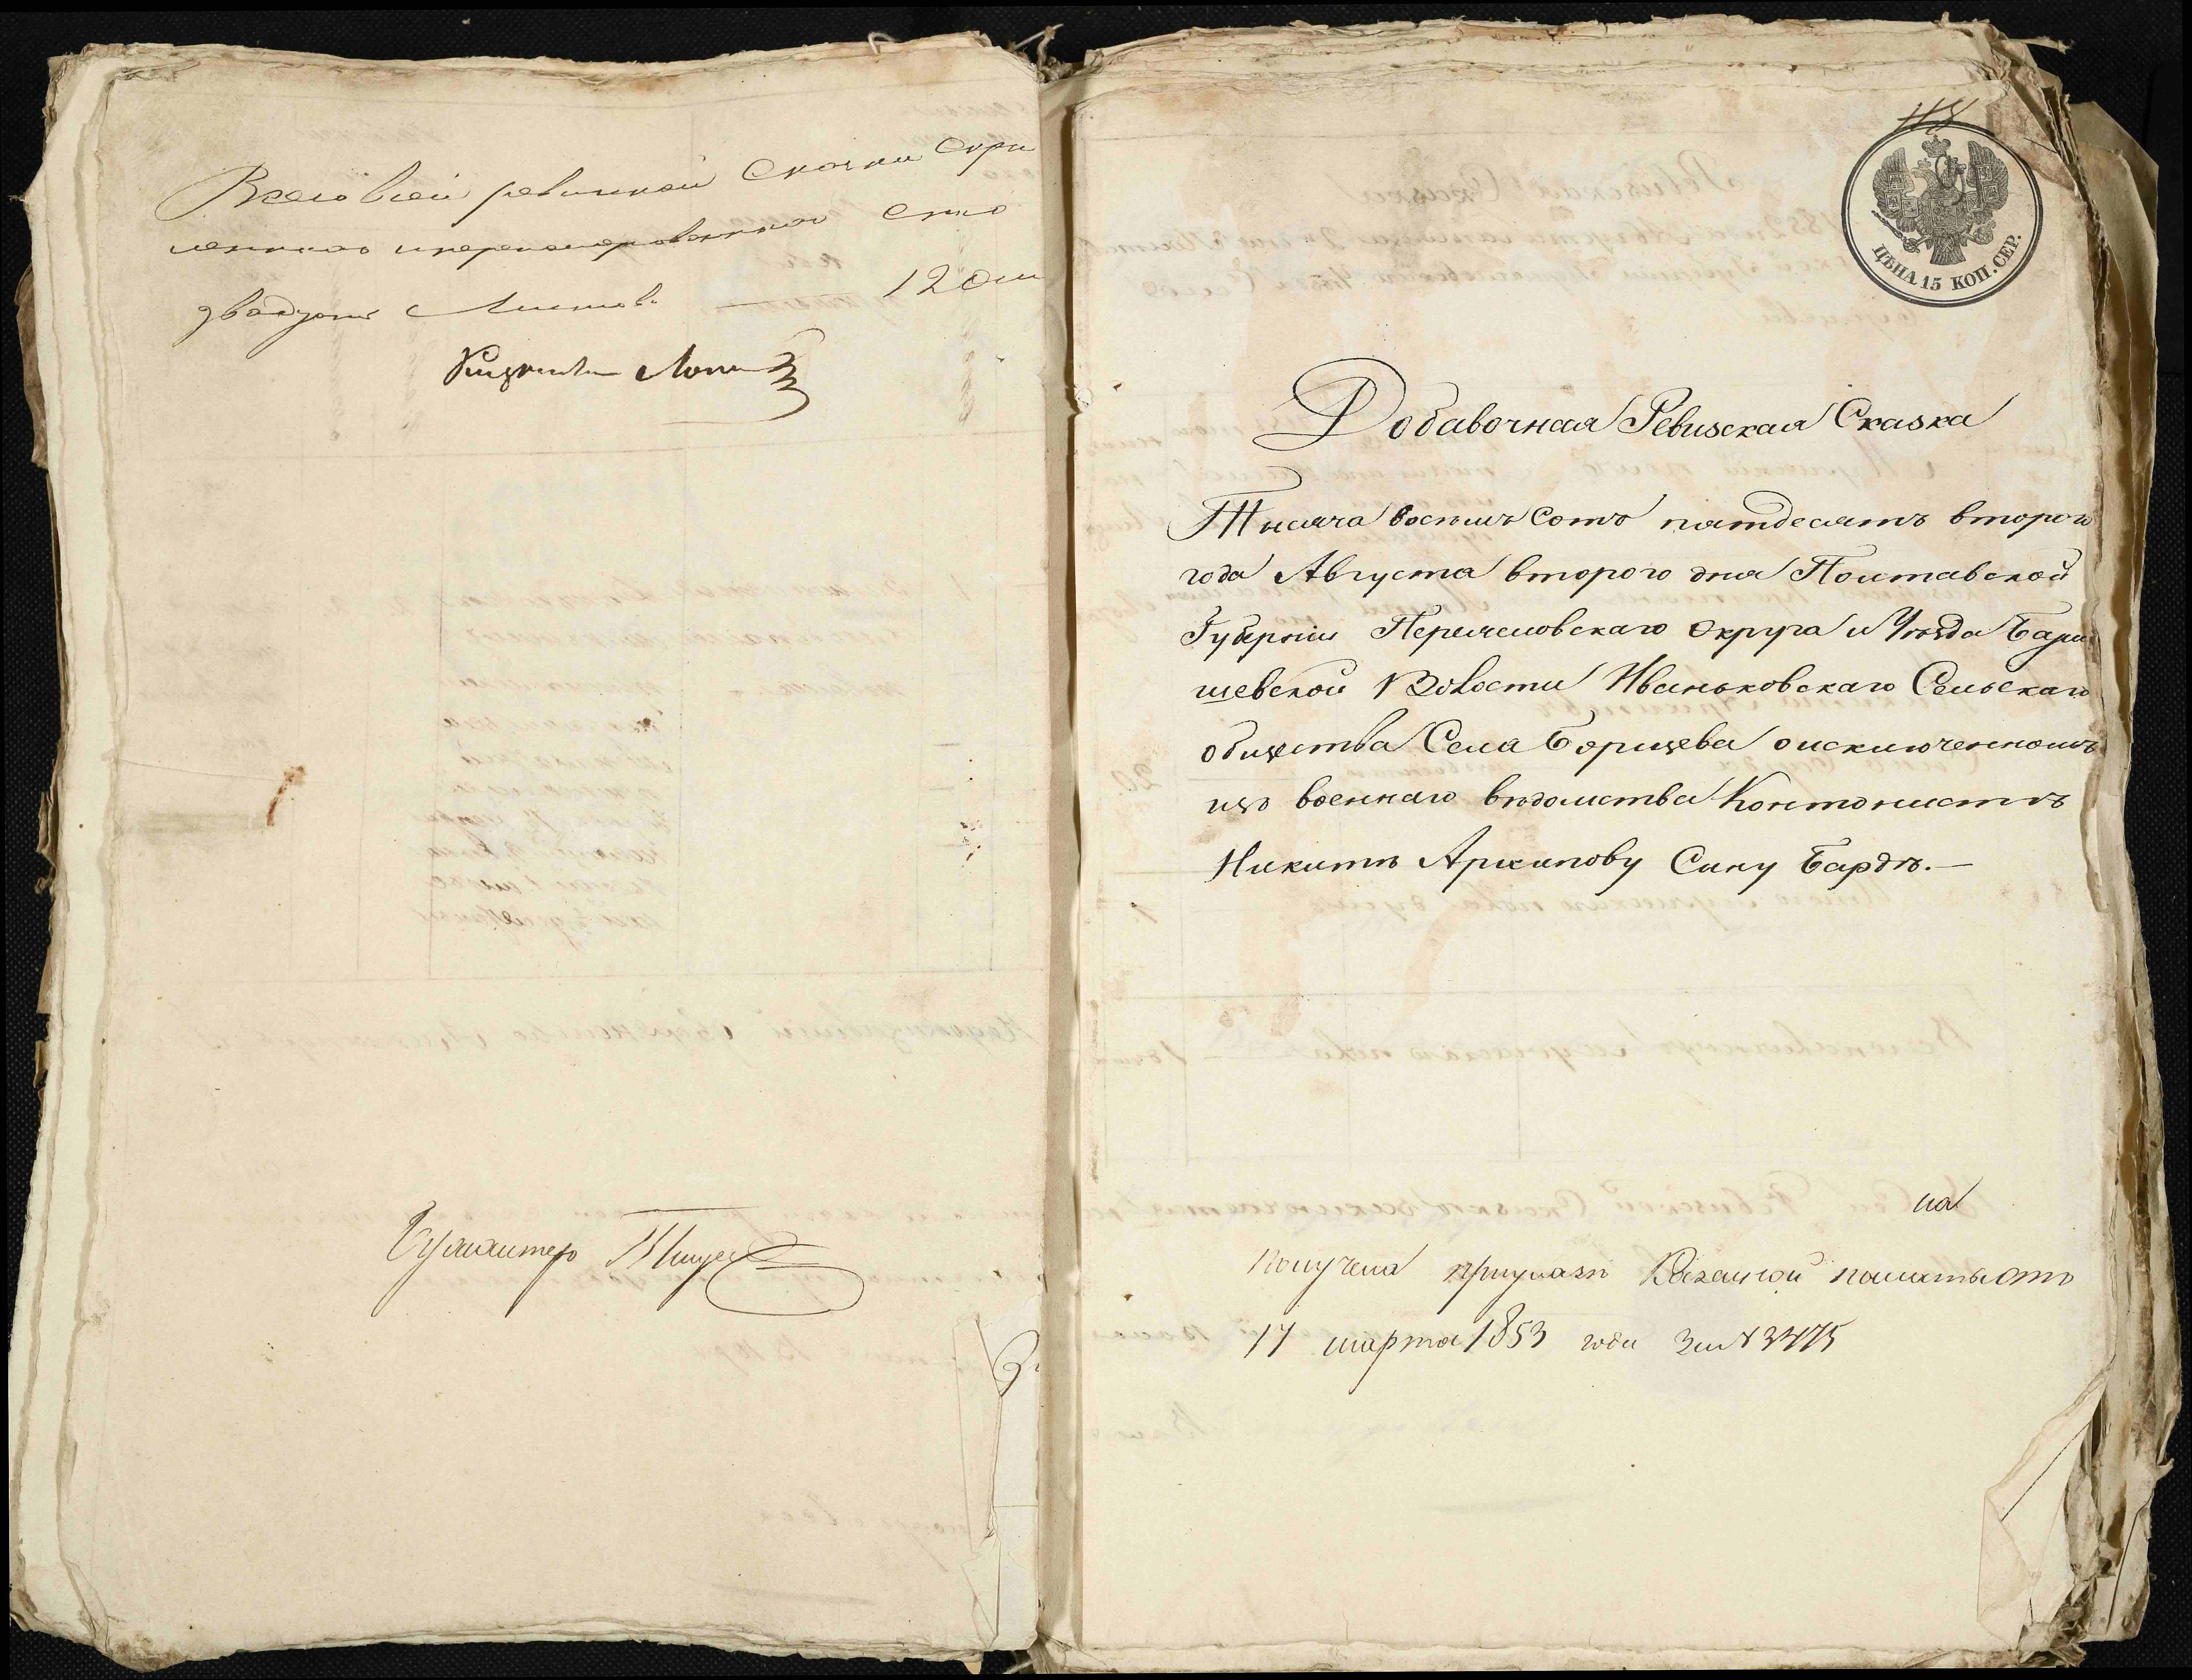 Всего в сей ревизкой Сказки Скре
пленнаго и перенумерованнаго Сто
двадцать Листов. — 120 ли
Бухгалтер
118
ЦѢНА 15 КОП. СЕР.
Добавочная Ревизская Сказка
Тысяча восемь Сотъ пятдесятъ второго
года Августа второго дня Полтавской
Губернии Переяславскаго Округа и Уѣзда Бари
шевской Волости Иваньковскаго Сельскаго
общества Села Борщева о исключенномъ
изъ военнаго вѣдомства Контонистѣ
Никитѣ Архипову Сыну Бардѣ.—
на
Получена при указѣ Казенной палаты отъ
17 марта 1853 года за № 3475